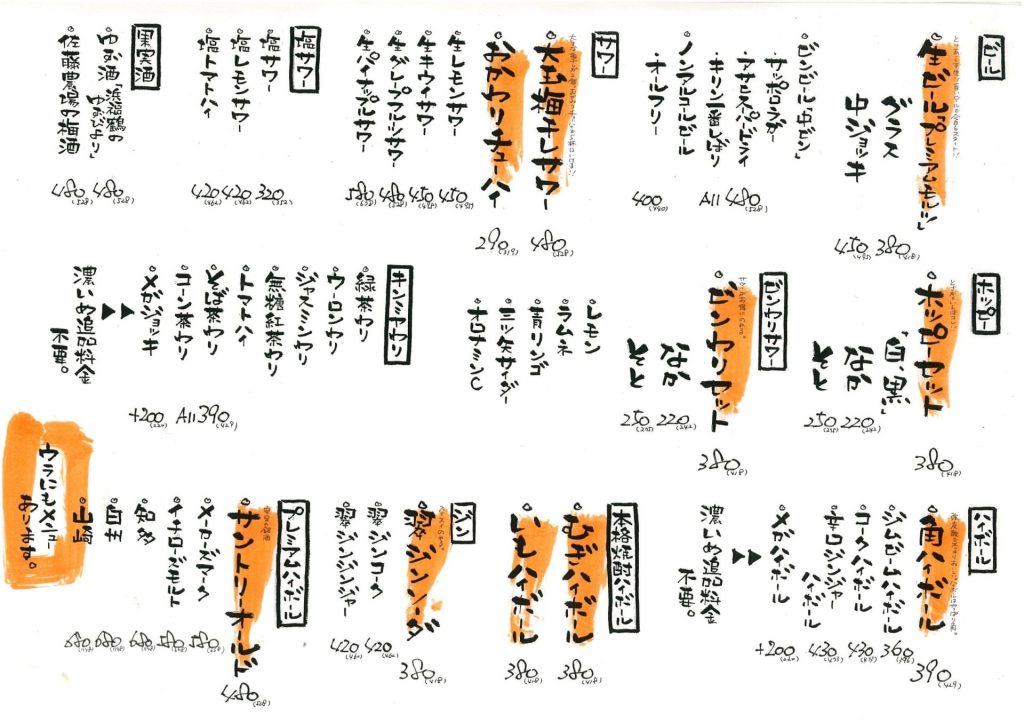 ビール
生ビール「プレミアムモルツ」
グラス 380(418)
中ジョッキ 450(495)
ビンビール「中ビン」
・サッポロラガー
・アサヒスーパードライ
・キリン一番しぼり
All 480(528)
ノンアルコールビール
・オールフリー
400(440)
サワー
大玉梅干しサワー 480(528)
おかわりチューハイ 290(319)
生レモンサワー 450(495)
生キウイサワー 450(495)
生グレープフルーツサワー 480(528)
生パイナップルサワー 580(638)
塩サワー
塩サワー 320(352)
塩レモンサワー 420(462)
塩トマトハイ 420(462)
果実酒
ゆず酒「浜福鶴のゆずびたり」 480(528)
佐藤農場の梅酒 480(528)
ホッピー
ホッピーセット 380(418)
「白、黒」
なか 220(242)
そと 250(275)
ビンワリサワー
ビンワリセット 380(418)
なか 220(242)
そと 250(275)
レモン
ラムネ
青リンゴ
三ツ矢サイダー
オロナミンC
キンミヤワリ
緑茶ワリ
ウーロンワリ
ジャスミンワリ
無糖紅茶ワリ
トマトハイ
そば茶ワリ
コーン茶ワリ
All 390(429)
メガジョッキ +200(220)
濃いめ追加料金
不要。
ハイボール
角ハイボール 390(429)
ジムビームハイボール 360(396)
コークハイボール 430(473)
辛口ジンジャーハイボール 430(473)
メガハイボール +200(220)
濃いめ追加料金
不要。
本格焼酎ハイボール
むぎハイボール 380(418)
いもハイボール 380(418)
ジン
翠ジンソーダ 380(418)
翠ジンコーク 420(462)
翠ジンジンジャー 420(462)
プレミアムハイボール
サントリーオールド 480(528)
メーカーズマーク 580(638)
イチローズモルト 580
知多 680
白州 680
山崎 680
ウラにもメニュー
あります。